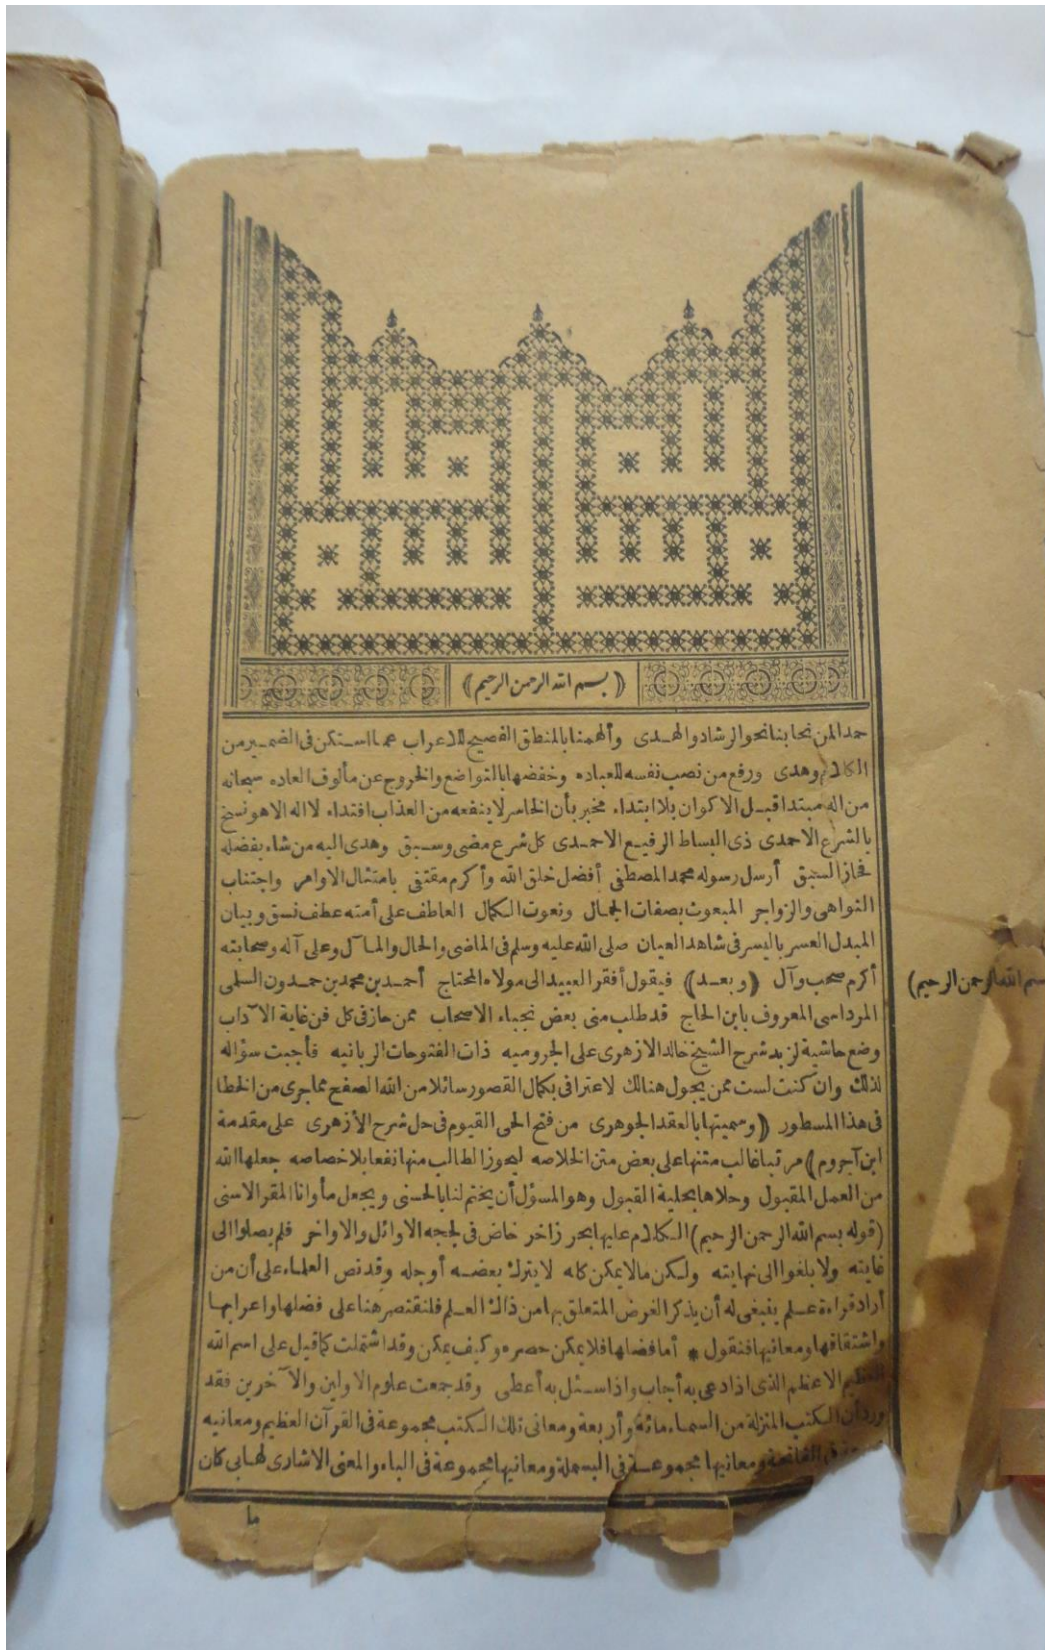 ﴿بسم الله الرحمن الرحيم﴾
حمدا لمن نحا بنا نحو الرشاد والهدى وألهمنا بالمنطق الفصيح للاعراب عما استكن فى الضمير من
الكلام وهدى ورفع من نصب نفسه للعباده وخفضها بالتواضع والخروج عن مألوف العاده سبحانه
من اله مبتدا قبل الاكوان بلا ابتداء مخبر بأن الخاسر لا ينفعه من العذاب افتداء لا اله الا هو نسخ
بالشرع الاحمدى ذى البساط الرفيع الاحمدى كل شرع مضى وسبق وهدى اليه من شاء بفضله
فحاز السبق أرسل رسوله محمد المصطفى أفضل خلق الله وأكرم مقتفى بامتثال الاوامر واجتناب
النواهى والزواجر المبعوث بصفات الجمال ونعوت الكمال العاطف على أمته عطف نسق وبيان
المبدل العسر باليسر فى شاهد العيان صلى الله عليه وسلم فى الماضى والحال والمآل وعلى آله وصحابته
أكرم صحب وآل ﴿وبعد﴾ فيقول أفقر العبيد الى مولاه المحتاج أحمد بن محمد بن حمدون السلمى
المرداسى المعروف بابن الحاج قد طلب منى بعض نجباء الاصحاب ممن حاز فى كل فن غاية الآداب
وضع حاشية لزبد شرح الشيخ خالد الازهرى على الجروميه ذات الفتوحات الربانيه فأجبت سؤاله
لذلك وان كنت لست ممن يجول هنالك لاعترافى بكمال القصور سائلا من الله الصفح مما جرى من الخطا
فى هذا المسطور ﴿وسميتها بالعقد الجوهرى من فتح الحى القيوم فى حل شرح الأزهرى على مقدمة
ابن آجروم﴾ مرتبا غالب متنها على بعض متن الخلاصه ليحوز الطالب منها نفعا بلا خصاصه جعلها الله
من العمل المقبول وحلاها بحلية القبول وهو المسؤل أن يختم لنا بالحسنى ويجعل مأوانا المقر الاسنى
(قوله بسم الله الرحمن الرحيم) الكلام عليها بحر زاخر خاض فى لججه الاوائل والاواخر فلم يصلوا الى
غايته ولا بلغوا الى نهايته ولكن ما لا يمكن كله لا يترك بعضه أوجله وقد نص العلماء على أن من
أراد قراءة علم ينبغى له أن يذكر الغرض المتعلق بها من ذلك العلم فلنقتصر هنا على فضلها واعرابها
واشتقاقها ومعانيها فنقول * أما فضلها فلا يمكن حصره وكيف يمكن وقد اشتملت كما قيل على اسم الله
العظيم الاعظم الذى اذا دعى به أجاب واذا سئل به أعطى وقد جمعت علوم الاولين والآخرين فقد
ورد أن الكتب المنزلة من السماء مائة وأربعة ومعانى تلك الكتب مجموعة فى القرآن العظيم ومعانيه
الفاتحة ومعانيها مجموعة فى البسملة ومعانيها مجموعة فى الباء والمعنى الاشارى لها بى كان
ما
الله الرحمن الرحيم)